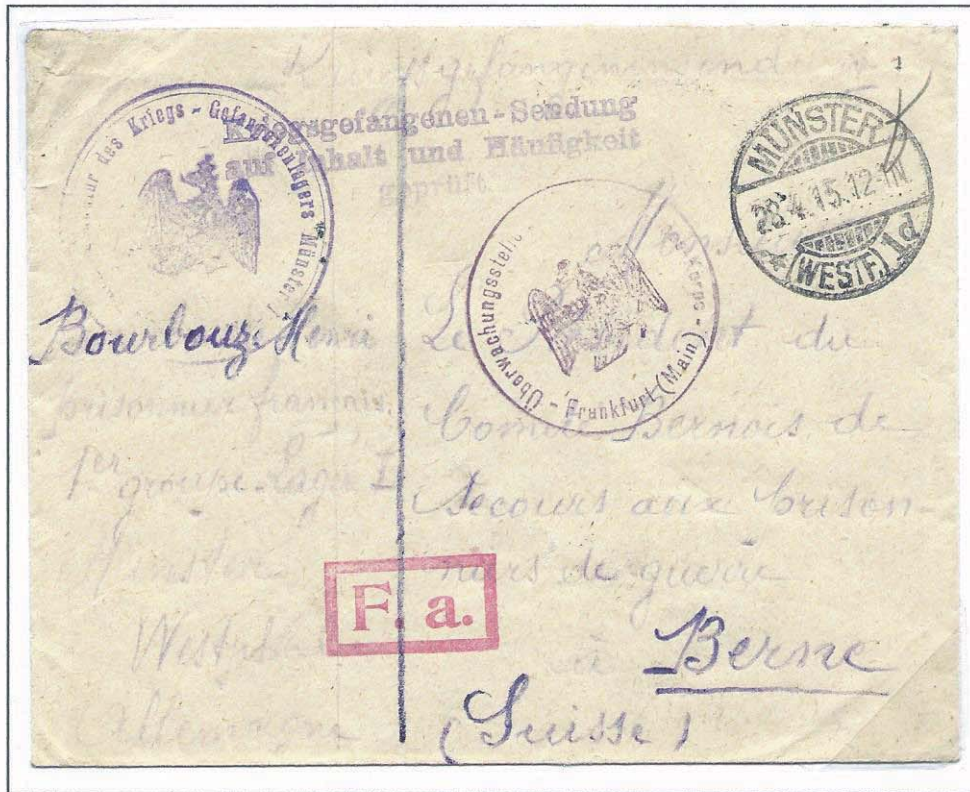 Kriegsgefangenensendung
Kriegsgefangenen-Sendung
auf Inhalt und Häufigkeit
geprüft
des Kriegs-Gefangenenlagers Münster
MÜNSTER
28.4.15.12-1N
* (WESTF.) 1d
Überwachungsstelle
Frankfurt (Main)
Bourbouze Henri
prisonnier français
1er groupe Lager I
Münster
Westph
Allemagne
Monsieur
Le Président du
Comité Bernois de
Secours aux Prison-
niers de guerre
à
Berne
(Suisse)
F. a.